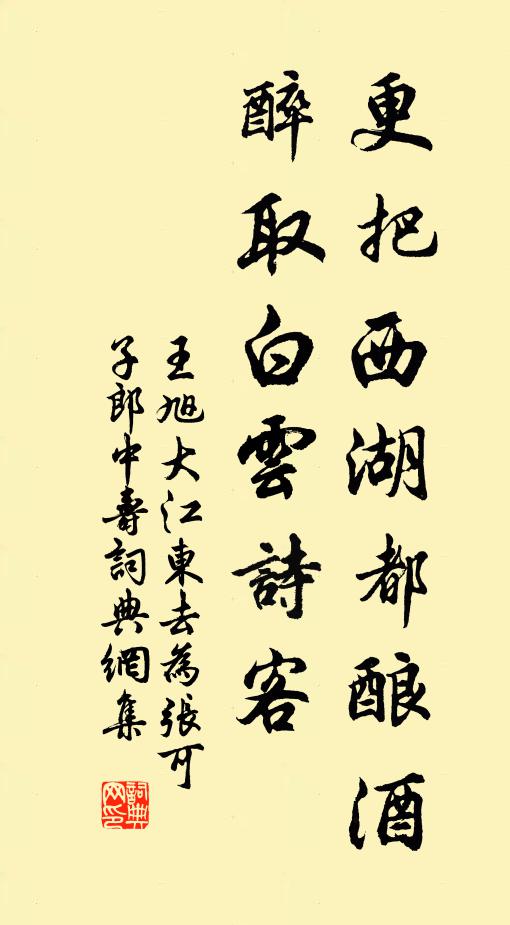 更把西湖都酿酒
醉取白雲詩客
王旭大江東去為張可
子郎中壽詞典網集
詞典网印